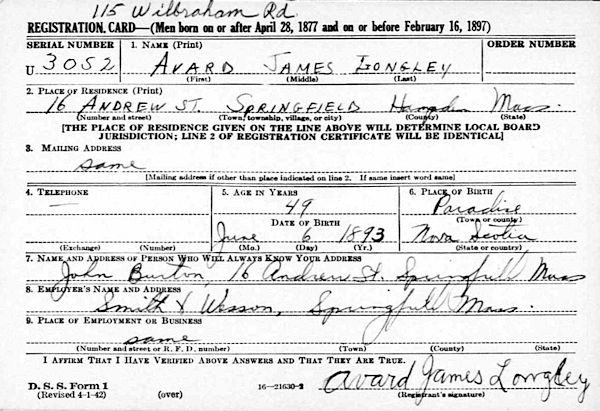 115 Wilbraham Rd
REGISTRATION CARD—(Men born on or after April 28, 1877 and on or before February 16, 1897)
SERIAL NUMBER 1. NAME (Print) ORDER NUMBER
U 3052 AVARD JAMES LONGLEY
(First) (Middle) (Last)
2. PLACE OF RESIDENCE (Print)
16 ANDREW ST. SPRINGFIELD Hampden Mass.
(Number and street) (Town, township, village, or city) (County) (State)
[THE PLACE OF RESIDENCE GIVEN ON THE LINE ABOVE WILL DETERMINE LOCAL BOARD
JURISDICTION; LINE 2 OF REGISTRATION CERTIFICATE WILL BE IDENTICAL]
3. MAILING ADDRESS
same
[Mailing address if other than place indicated on line 2. If same insert word same]
4. TELEPHONE 5. AGE IN YEARS 6. PLACE OF BIRTH
— 49 Paradise
DATE OF BIRTH (Town or county)
June 6 1893 Nova Scotia
(Exchange) (Number) (Mo.) (Day) (Yr.) (State or country)
7. NAME AND ADDRESS OF PERSON WHO WILL ALWAYS KNOW YOUR ADDRESS
John Burton, 16 Andrew St. Springfield Mass
8. EMPLOYER'S NAME AND ADDRESS
Smith & Wesson, Springfield Mass.
9. PLACE OF EMPLOYMENT OR BUSINESS
same
(Number and street or R. F. D. number) (Town) (County) (State)
I AFFIRM THAT I HAVE VERIFIED ABOVE ANSWERS AND THAT THEY ARE TRUE.
D. S. S. Form 1 Avard James Longley
(Revised 4-1-42) (over) 16—21630-2 (Registrant's signature)